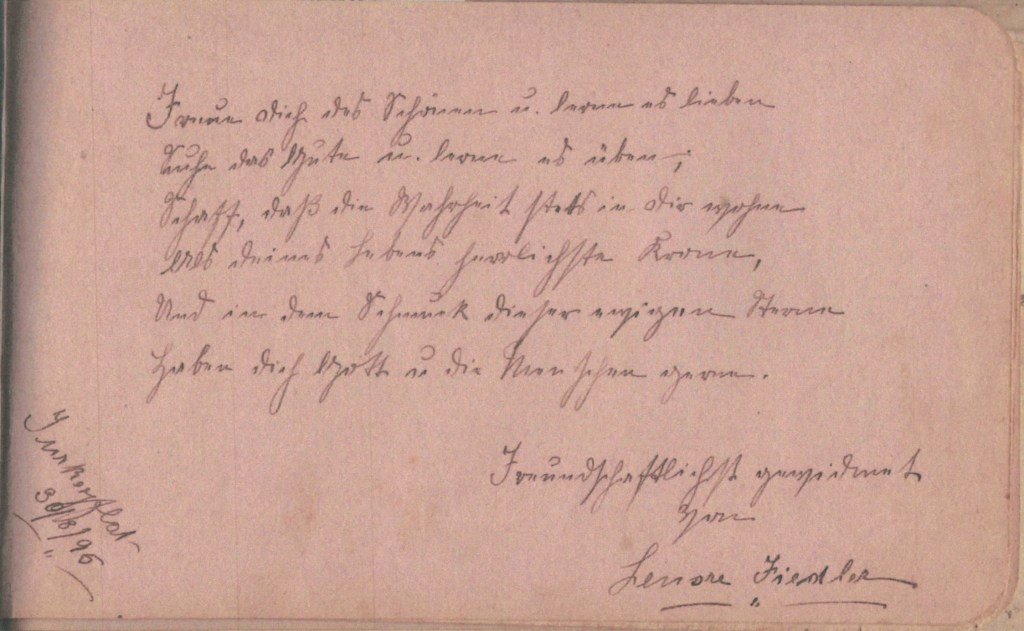 Freue dich des Schönen u. lerne es lieben
Suche das Gute u. lerne es üben;
Schaff, daß die Wahrheit stets in dir wohne
Als deines Lebens herrlichste Krone,
Und in dem Schmuck dieser ewigen Sterne
Haben dich Gott u die Menschen gerne.
Freundschaftlichst gewidmet
von
Lenore Fiedler
30/8/96